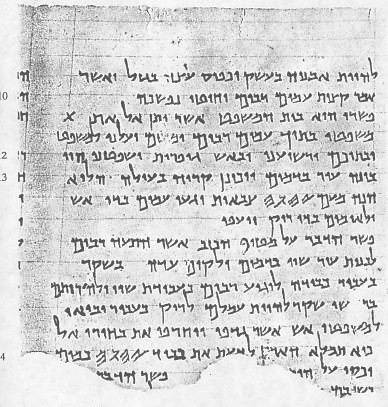 להיות אבניה בעשק וכפיס עיצה בגזל ואשר
10
אמר קצות עמים רבים וחוטי נפשכה
פשרו הוא בית המשפט אשר יתן אל את X
משפטו בתוך עמים רבים ומשם יעלנו למשפט
12
ובתוכם ירשיענו ובאש גופרית ישפטנו הוי
13
בונה עיר בדמים ויכונן קריה בעולה הלוא
הנה מעם 𐤉𐤄𐤅𐤄 צבאות יגעו עמים בדי אש
ולאומים בדי ריק ייעפו
פשר הדבר על מטיף הכזב אשר התעה רבים
לבנות עיר שוו בדמים ולקים עדה בשקר
בעבור כבודה לוגיע רבים בעבודת שוו ולהרותם
שקר להיות עמלם לריק בעבור יבואו
למשפטי אש אשר גדפו ויחרפו את בחירי אל
4
כיא תמלא הארץ לדעת את כבוד 𐤉𐤄𐤅𐤄 כמים
יכסו על פשר הדבר